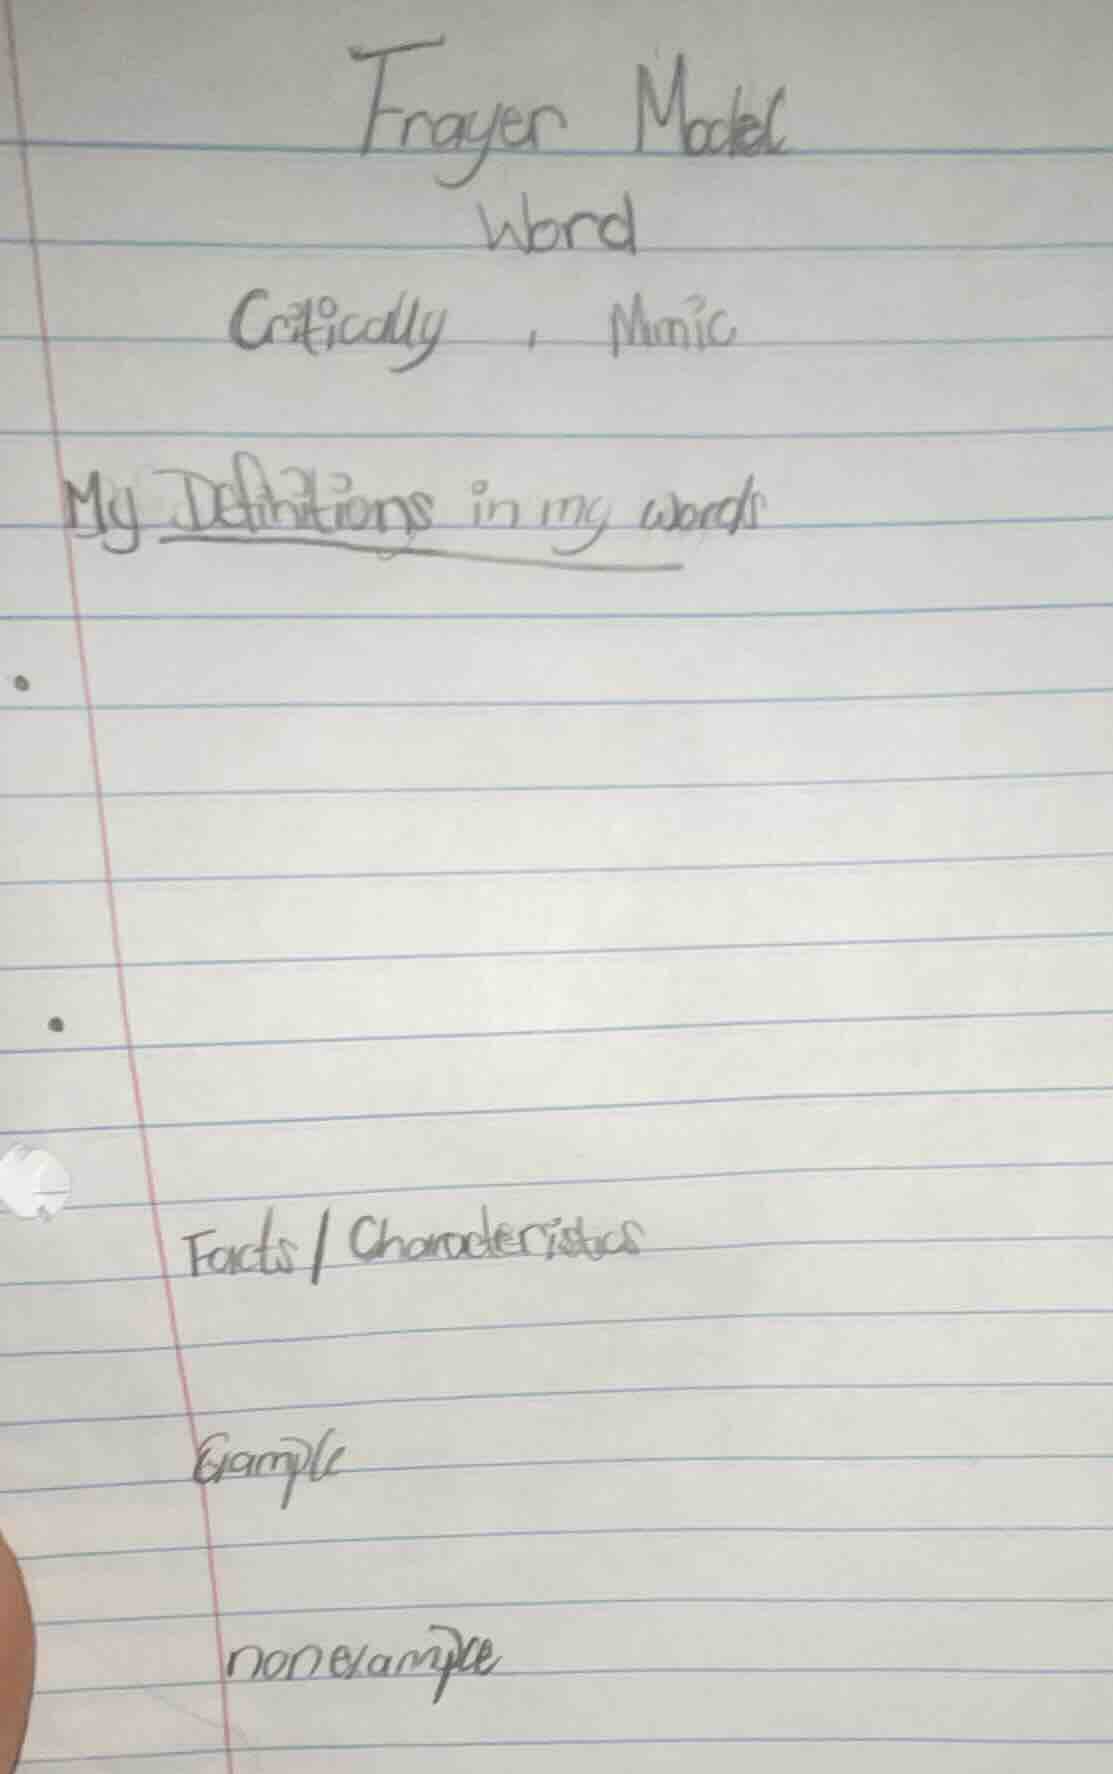 Frayer Model
Word
Critically, Mimic
My Definitions in my words
Facts / Characteristics
Example
nonexample